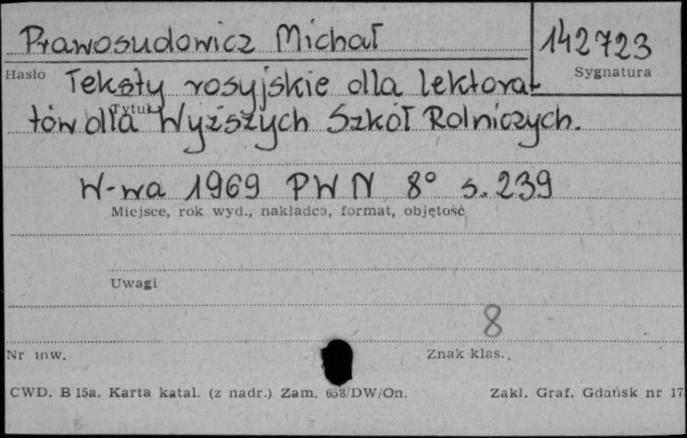 Prawosudowicz Michał
142723
Hasło
Sygnatura
Teksty rosyjskie dla lektora-
Tytuł
tów dla Wyższych Szkół Rolniczych.
W-wa 1969 PWN 8° s. 239
Miejsce, rok wyd., nakładca, format, objętość
Uwagi
8
Nr inw.
Znak klas.
CWD. B 15a. Karta katal. (z nadr.) Zam. 658/DW/On.
Zakł. Graf. Gdańsk nr 17